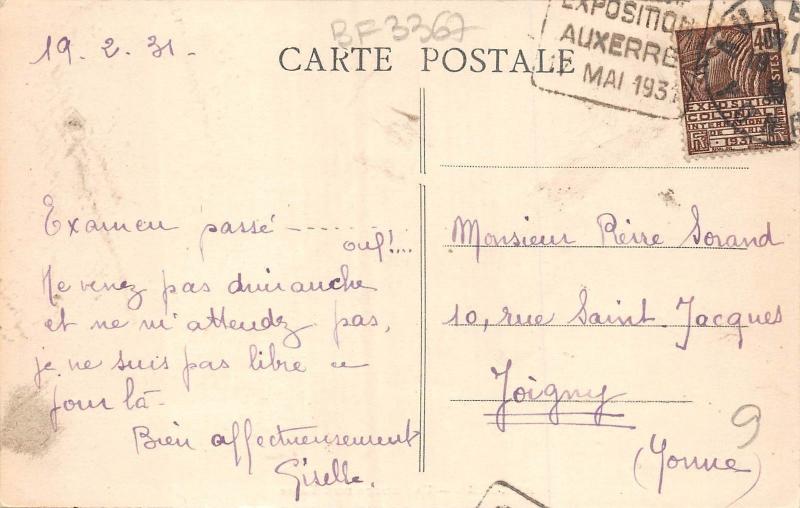 19.2.31.
BF3367
CARTE POSTALE
EXPOSITION
AUXERRE
MAI 1931
40
POSTES
EXPOSITION
COLONIALE
INTERNATIONALE
1931
Examen passé ------- ouf!...
Ne venez pas dimanche
et ne m'attendez pas,
je ne suis pas libre ce
jour là-
Bien affectueusement
Giselle.
Monsieur Pierre Sorand
10, rue Saint Jacques
Joigny
(Yonne)
9